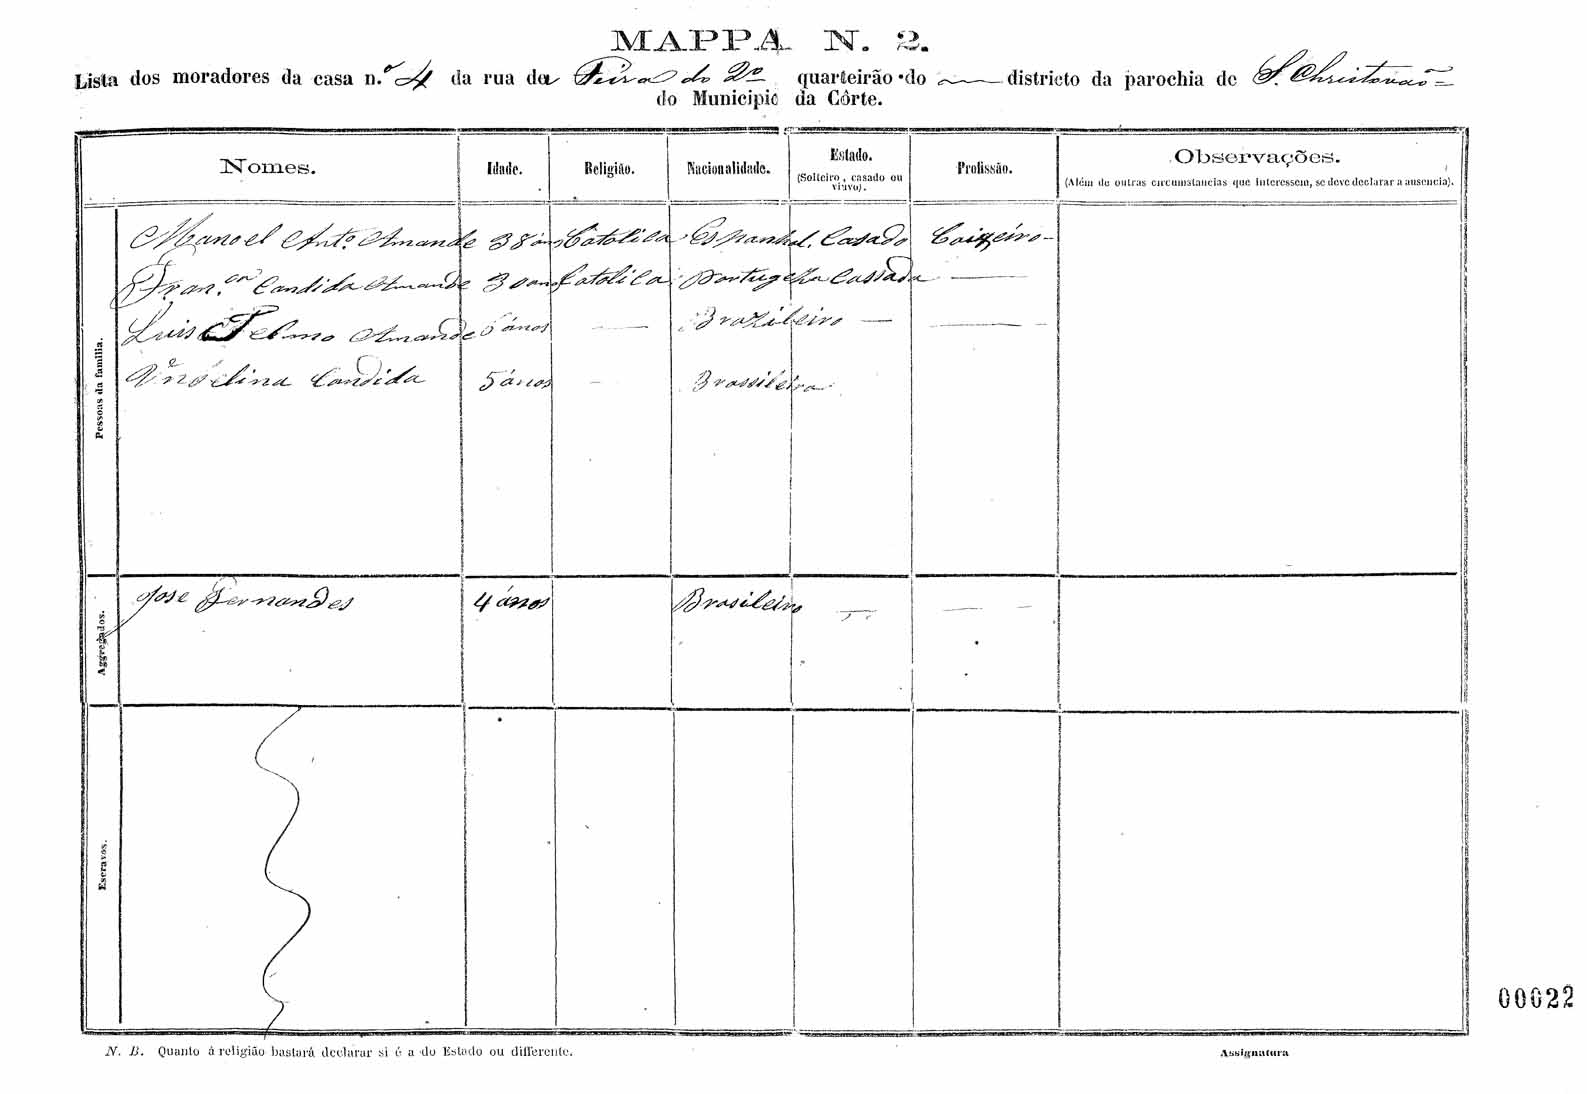 MAPPA N. 2.
Lista dos moradores da casa n.º 4 da rua da Feira do 2º quarteirão do — districto da parochia de S. Christovão
do Municipio da Côrte.
Nomes. Idade. Religião. Nacionalidade. Estado. Profissão. Observações.
(Solteiro, casado ou viuvo). (Além de outras circumstancias que interessem, se deve declarar a ausencia).
Pessoas da familia.
Manoel Antº Amande 38 ános Catolica Espanhol. Casado Caixeiro
Fran.ca Candida Amande 30 anos Catolica Portugeza Cassada —
Luis Telmo Amande 6 ános — Brazileiro — —
Candida 5 ános — Brassileira
Aggregados.
Jose Fernandes 4 ános Brasileiro — — —
Escravos.
N. B. Quanto á religião bastará declarar si é a do Estado ou differente.
Assignatura
00022